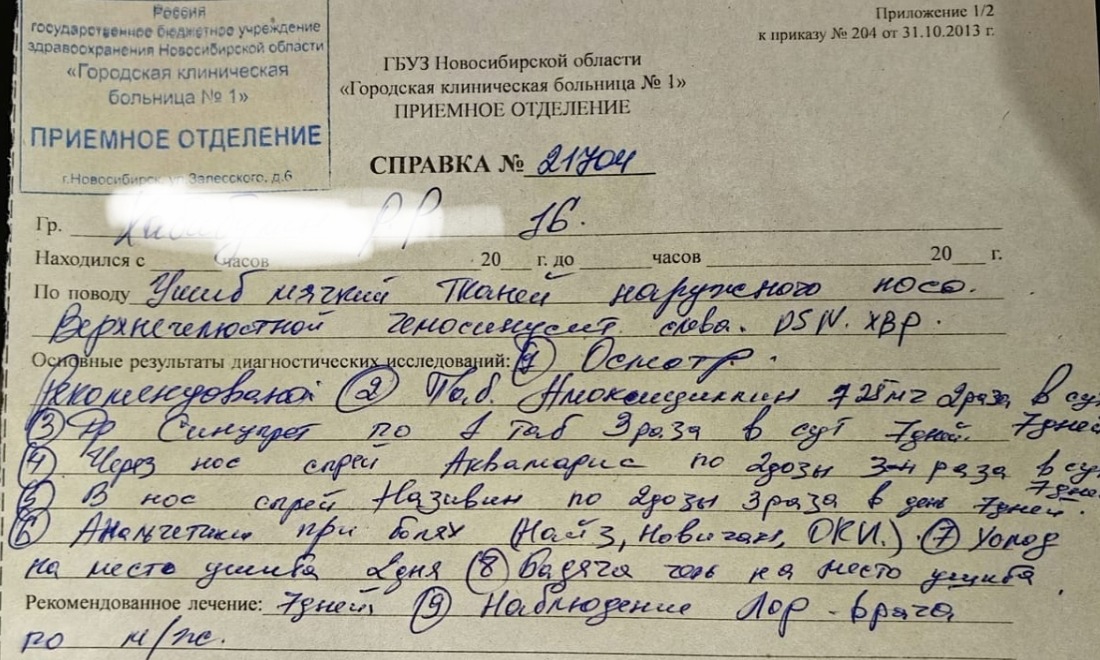 Россия
государственное бюджетное учреждение
здравоохранения Новосибирской области
«Городская клиническая
больница № 1»
ПРИЕМНОЕ ОТДЕЛЕНИЕ
г.Новосибирск, ул.Залесского, д.6
Приложение 1/2
к приказу № 204 от 31.10.2013 г.
ГБУЗ Новосибирской области
«Городская клиническая больница № 1»
ПРИЕМНОЕ ОТДЕЛЕНИЕ
СПРАВКА № 21704
Гр. 16.
Находился с часов 20 г. до часов 20 г.
По поводу Ушиб мягкий тканей наружного носа.
Верхнечелюстной слева. DSN. ХВР.
Основные результаты диагностических исследований: 1 Осмотр.
2 Таб. 2 раза в сут
3 Синупрет по 1 таб 3 раза в сут 7 дней. 7 дней
4 Через нос спрей Аквамарис по 2 дозы 3-4 раза в сут
7 дней
5 В нос спрей Називин по 2 дозы 3 раза в день 7 дней.
6 при болях (Найз, ОКИ.). 7 Холод
на место ушиба 2 дня 8 Бадяга гель на место ушиба
Рекомендованное лечение: 7 дней 9 Наблюдение Лор-врача
по м/ж.